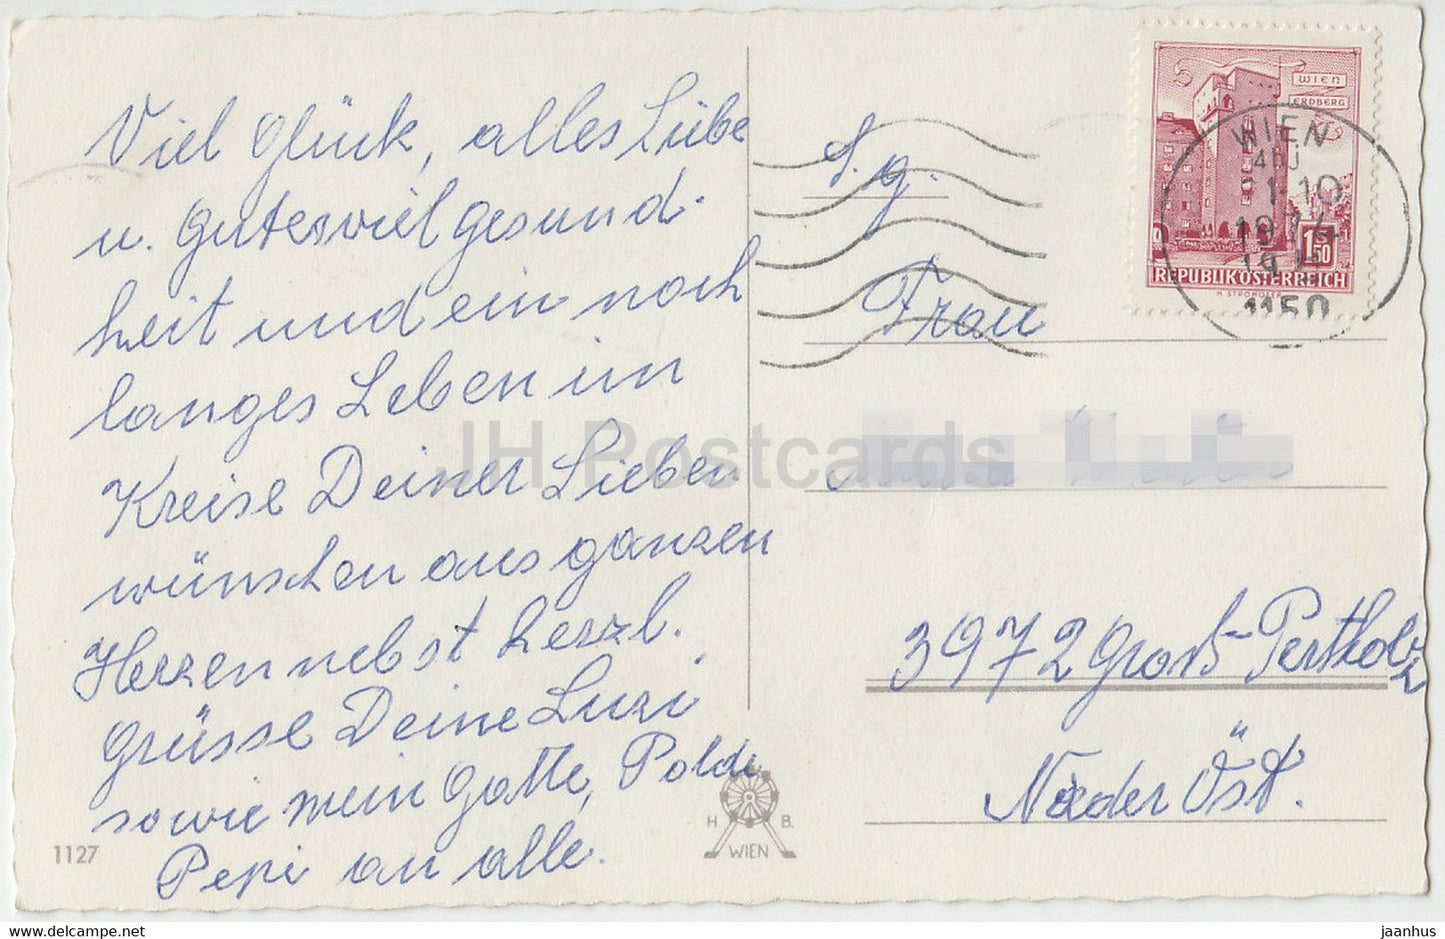 Viel Glück, alles Liebe
u. Gutes viel gesund-
heit und ein noch
langes Leben im
Kreise Deiner Lieben
wünschen aus ganzen
Herzen nebst herzl.
Grüsse Deine Luzi
sowie mein Gatte, Poldi
Pepi an alle.
1127
H. B.
WIEN
S. g.
Frau
3972 Groß-Pertholz
Nieder Öst.
WIEN
ERDBERG
1 S 50
REPUBLIK ÖSTERREICH
WIEN
-10
1974
1150
JH Postcards
hippostcard.com
jaanhus